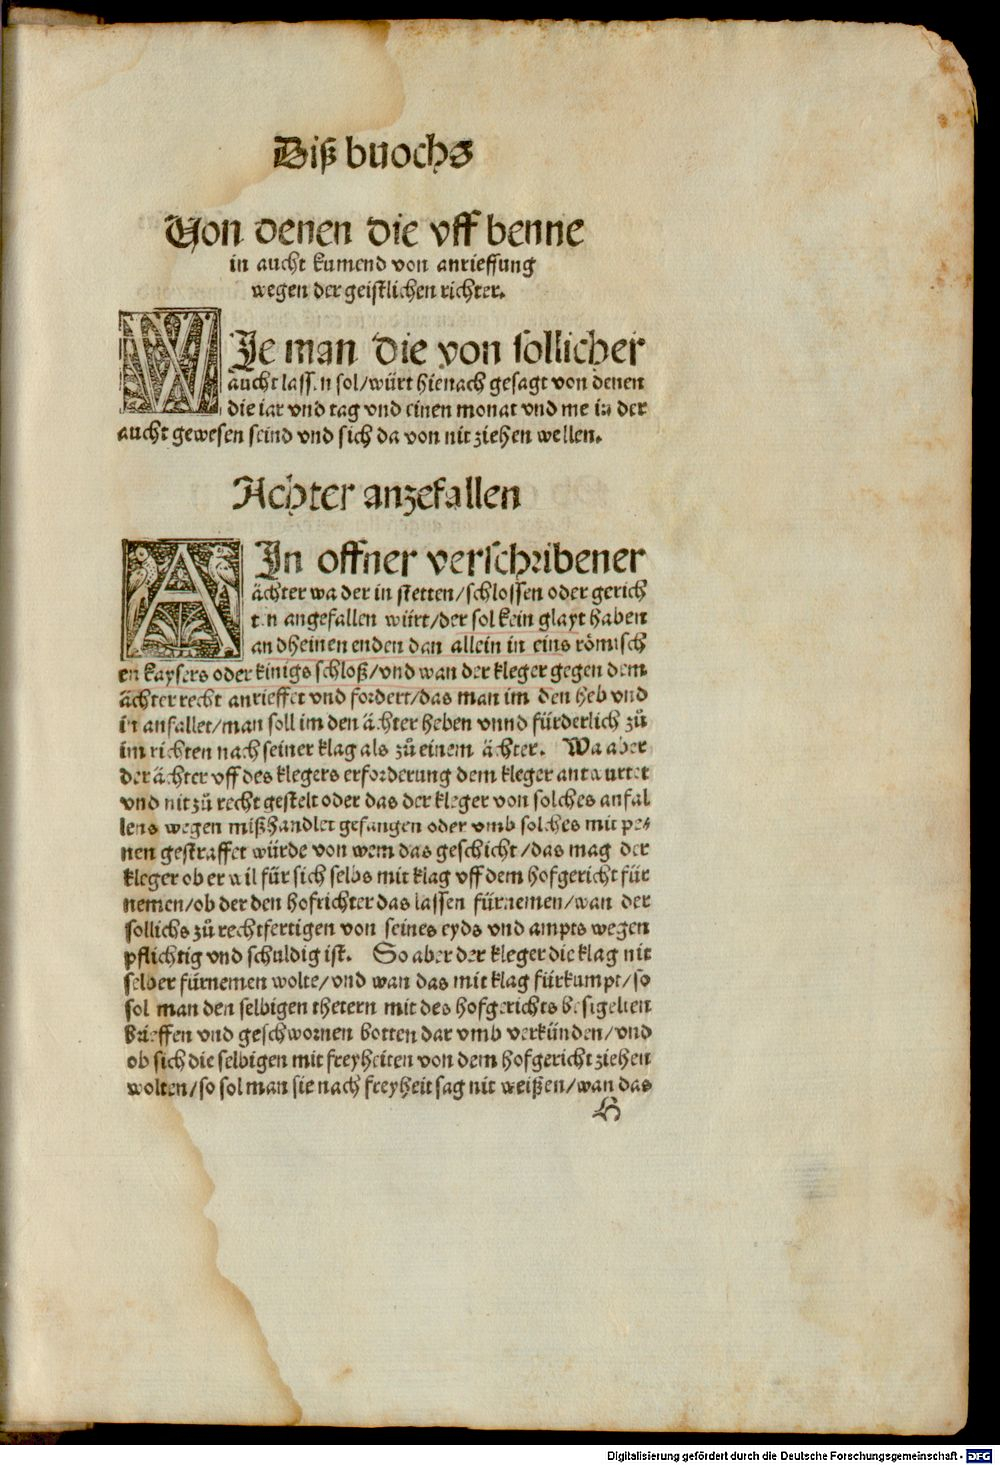 Diß buochs
Von denen die vff benne
in aucht kumend von anrieffung
wegen der geistlichen richter.
WIe man die von sollicher
aucht lassen sol/würt hienach gesagt von denen
die iar vnd tag vnd einen monat vnd me in der
aucht gewesen seind vnd sich da von nit ziehen wellen.
Achter anzefallen
AIn offner verschribener
ächter wa der in stetten/schlossen oder gerich
ten angefallen würt/der sol kein glayt haben
an dheinen enden dan allein in eins römisch
en kaysers oder kinigs schloß/vnd wan der kleger gegen dem
ächter recht anrieffet vnd fordert/das man im den heb vnd
in anfallet/man soll im den ächter heben vnnd fürderlich zů
im richten nach seiner klag als zů einem ächter. Wa aber
der ächter vff des klegers erforderung dem kleger antwurtet
vnd nit zů recht gestelt oder das der kleger von solches anfal
lens wegen mißhandlet gefangen oder vmb solches mit pe⸗
nen gestraffet würde von wem das geschicht/das mag der
kleger ob er wil für sich selbs mit klag vff dem hofgericht für
nemen/ob der den hofrichter das lassen fürnemen/wan der
sollichs zů rechtfertigen von seines eyds vnd ampts wegen
pflichtig vnd schuldig ist. So aber der kleger die klag nit
selber fürnemen wolte/vnd wan das mit klag fürkumpt/so
sol man den selbigen thetern mit des hofgerichts besigelten
brieffen vnd geschwornen botten dar vmb verkünden/vnd
ob sich die selbigen mit freyheiten von dem hofgericht ziehen
wolten/so sol man sie nach freyheit sag nit weißen/wan das
H
Digitalisierung gefördert durch die Deutsche Forschungsgemeinschaft - DFG